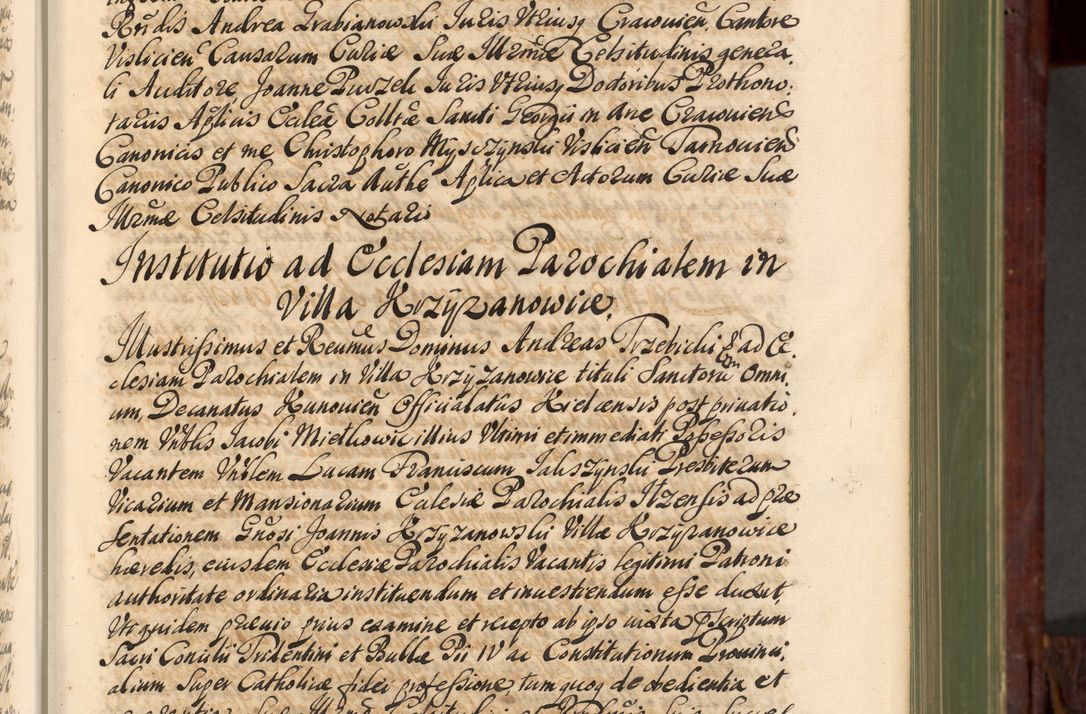 Rndis Andrea Grabianowski Iuris Vtriusq Cracouien, Cantore
Vislicien Causarum Curiæ Suæ Illrmæ Celsitudinis genera,
li Auditore Joanne Puszeli Iuris Vtriusq Doctoribus Prothono,
tariis Aplicis Eccleæ Colltæ Sancti Georgii in Arce Cracouien
Canonicis et me Christophoro Mysczynski Vislicien Tarnouien
Canonico Publico Sacra Authe Aplica et Actorum Curiæ Suæ
Illrmæ Celsitudinis Notario
Institutio ad Ecclesiam Parochialem in
Villa Krzyzanowice.
Illustrissimus et Reumus Domynus Andreas Trzebicki & ad Ec,
clesiam Parochialem in Villa Krzyzanowice tituli Sanctorum Omni,
um, Decanatus Kunouien Officialatus Kielcensis post priuatio,
nem Vrblis Jacobi Mietkowic illius Vltimi et immediati Possessoris
Vacantem Vnblem Lucam Franciscum Jaliszynski Presbiterum
Vicarium et Mansionarium Ecclesiæ Parochialis Itzensis ad præ
sentationem Gnosi Joannis Krzyzanowski Villæ Krzyzanowice
hæredis, eiusdem Ecclesiæ Parochialis Vacantis legitimi Patroni
authoritate ordinaria instituendum et inuestiendum esse duxit,
Vt quidem præuio prius examine et recepto ab ipso iuxta Præscriptum
Sacri Concilii Tridentini et Bullæ Pii IV ac Constitutionum Prouinci,
alium Super Catholicæ fidei professione, tum quoq de obedientia et